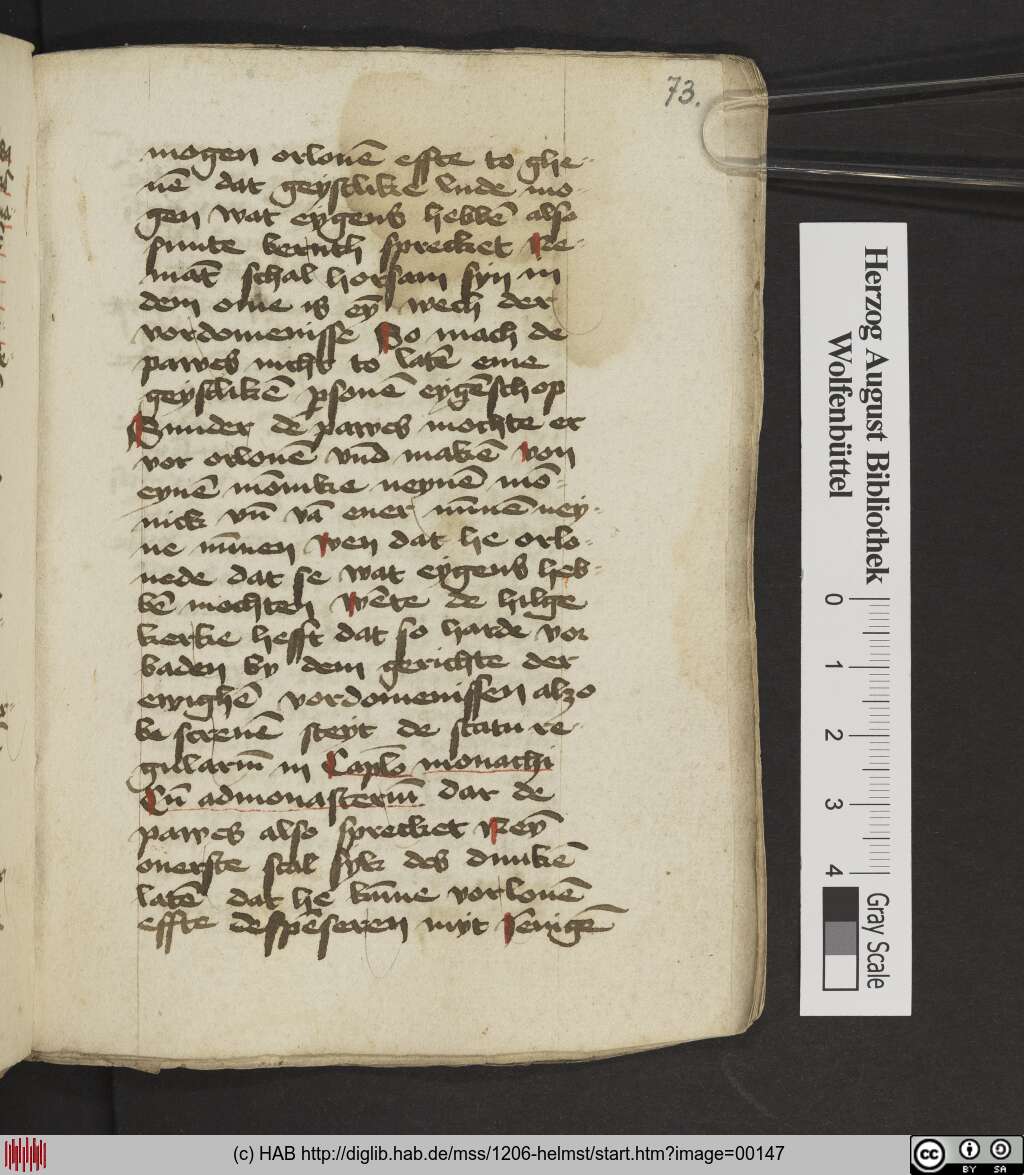 73.
mogen orlouē effte to ghe-
uē dat geystlike lude mo-
gen wat eygens hebbē also
sunte bernth sprecket Ne-
māt schal horsam syn in
dem ome is eȳ wech der
vordomenisse So mach de
pawes nicht to latē eme
geystlikē psonē eygēschop
Sunder de pawes mochte er
vor orlouē vnd makē von
eynē mōnike neynē mō-
nick vn̄ vā ener nūnē ney-
ne nūnen wen dat he orlo-
uede dat se wat eygens heb-
bē mochten Wēte de hilge
kerke hefft dat so harde vor
baden by dem gerichte der
ewighē vordomenissen alzo
be screuē steyt de statu re-
gulariū in Caplō monachi
Cū ad monasteriū dar de
pawes also sprecket Neȳ
ouerste scal syk des dunkē
latē dat he kūne vorlouē
effte despēseren myt ienigē
Herzog August Bibliothek
Wolfenbüttel
0 1 2 3 4
Gray Scale
(c) HAB http://diglib.hab.de/mss/1206-helmst/start.htm?image=00147
cc BY SA